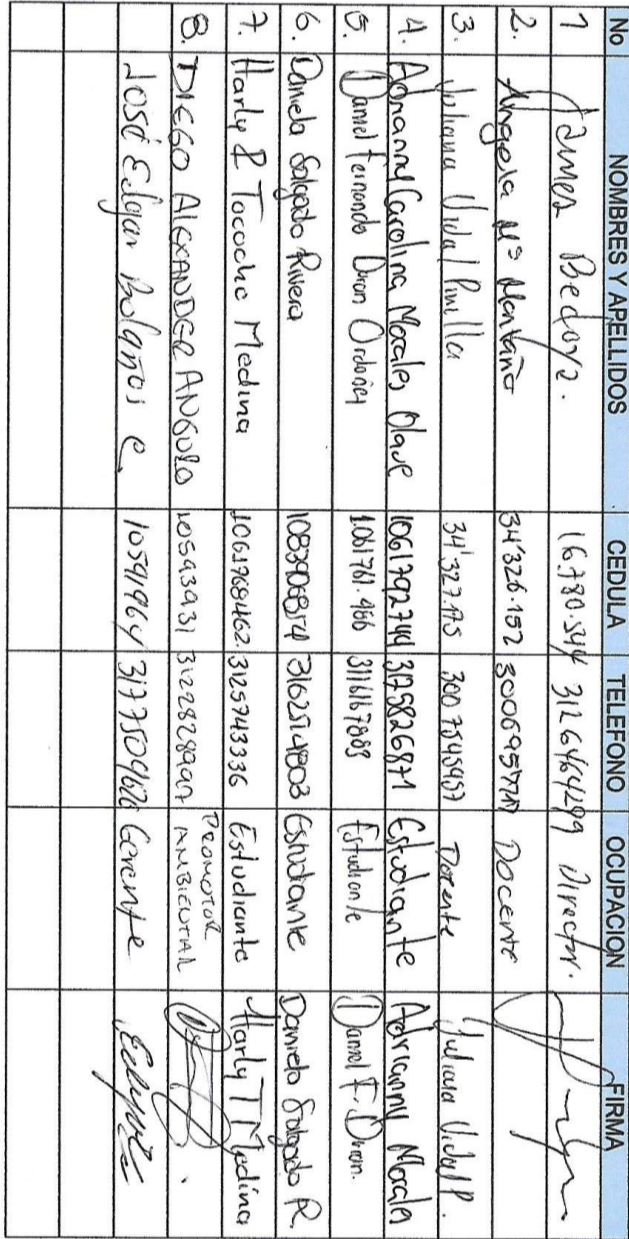 No NOMBRES Y APELLIDOS CEDULA TELEFONO OCUPACION FIRMA
1 James Bedoya. 16.780.544 3126464299 Director.
2. Angela Mª Montaño 34'326.152 Docente
3. Juliana Vidal Pinilla 300 7545457 Docente Juliana Vidal P.
4. Adrianny Carolina Morales Olave 1061792744 3175826871 Estudiante Adrianny Morales
5. Daniel Fernando Duran Ordoñez 1.061761.466 3116167889 Estudiante Daniel F. Duran.
6. Daniela Salgado Rivera 1083906814 3162514803 Estudiante Daniela Salgado R.
7. Harly & Tocoche Medina 1061768462. 3125743336 Estudiante Harly T Medina
8. DIEGO ALEXANDER ANGULO 10593931 3122828907 PROMOTOR AMBIENTAL
José Edgar Bolaños C. 10591964 Gerente